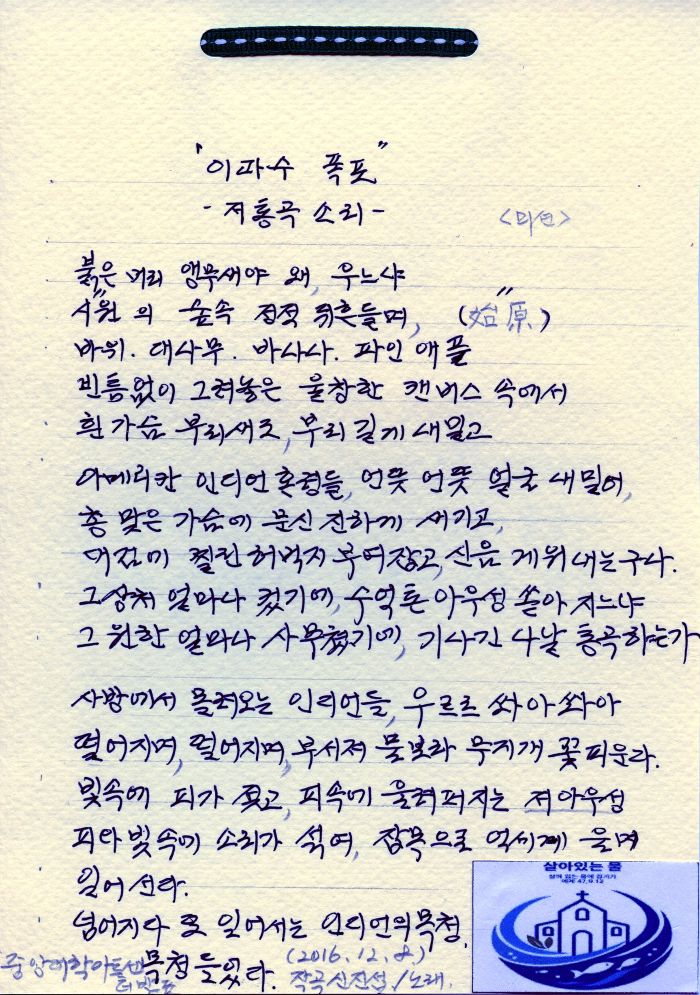 "이과수 폭포"
- 저 통곡 소리 -
붉은 머리 앵무새야 왜, 우느냐
"시원"의 숲속 정적 뒤흔들며, (始原)
바위. 대나무. 바나나. 파인애플
빈틈없이 그려놓은 울창한 캔버스 속에서
흰 가슴 부리새로, 부리 길게 내밀고
아메리칸 인디언 혼령들, 언뜻 언뜻 얼굴 내밀어,
총 맞은 가슴에 문신 진하게 새기고,
찔린 허벅지 부여잡고, 신음 게워 내는구나.
그 상처 얼마나 컸기에, 수억 톤 아우성 쏟아지느냐
그 원한 얼마나 사무쳤기에, 기나긴 나날 통곡하는가
사방에서 몰려오는 인디언들, 우르르 쏴아 쏴아
떨어지며, 떨어지며, 부서져 물보라 무지개 꽃 피운다.
빛속에 피가 젖고, 피속에 울려퍼지는 저 아우성
피와 빛속에 소리가 섞여, 잠복으로 억세게 울며
일어선다.
넘어지다 또 일어서는 인디언의 목청,
목청 들었다. (2016. 12. 8.)
작곡 신진섭 / 노래,
살아있는 물
에제 47,9.12